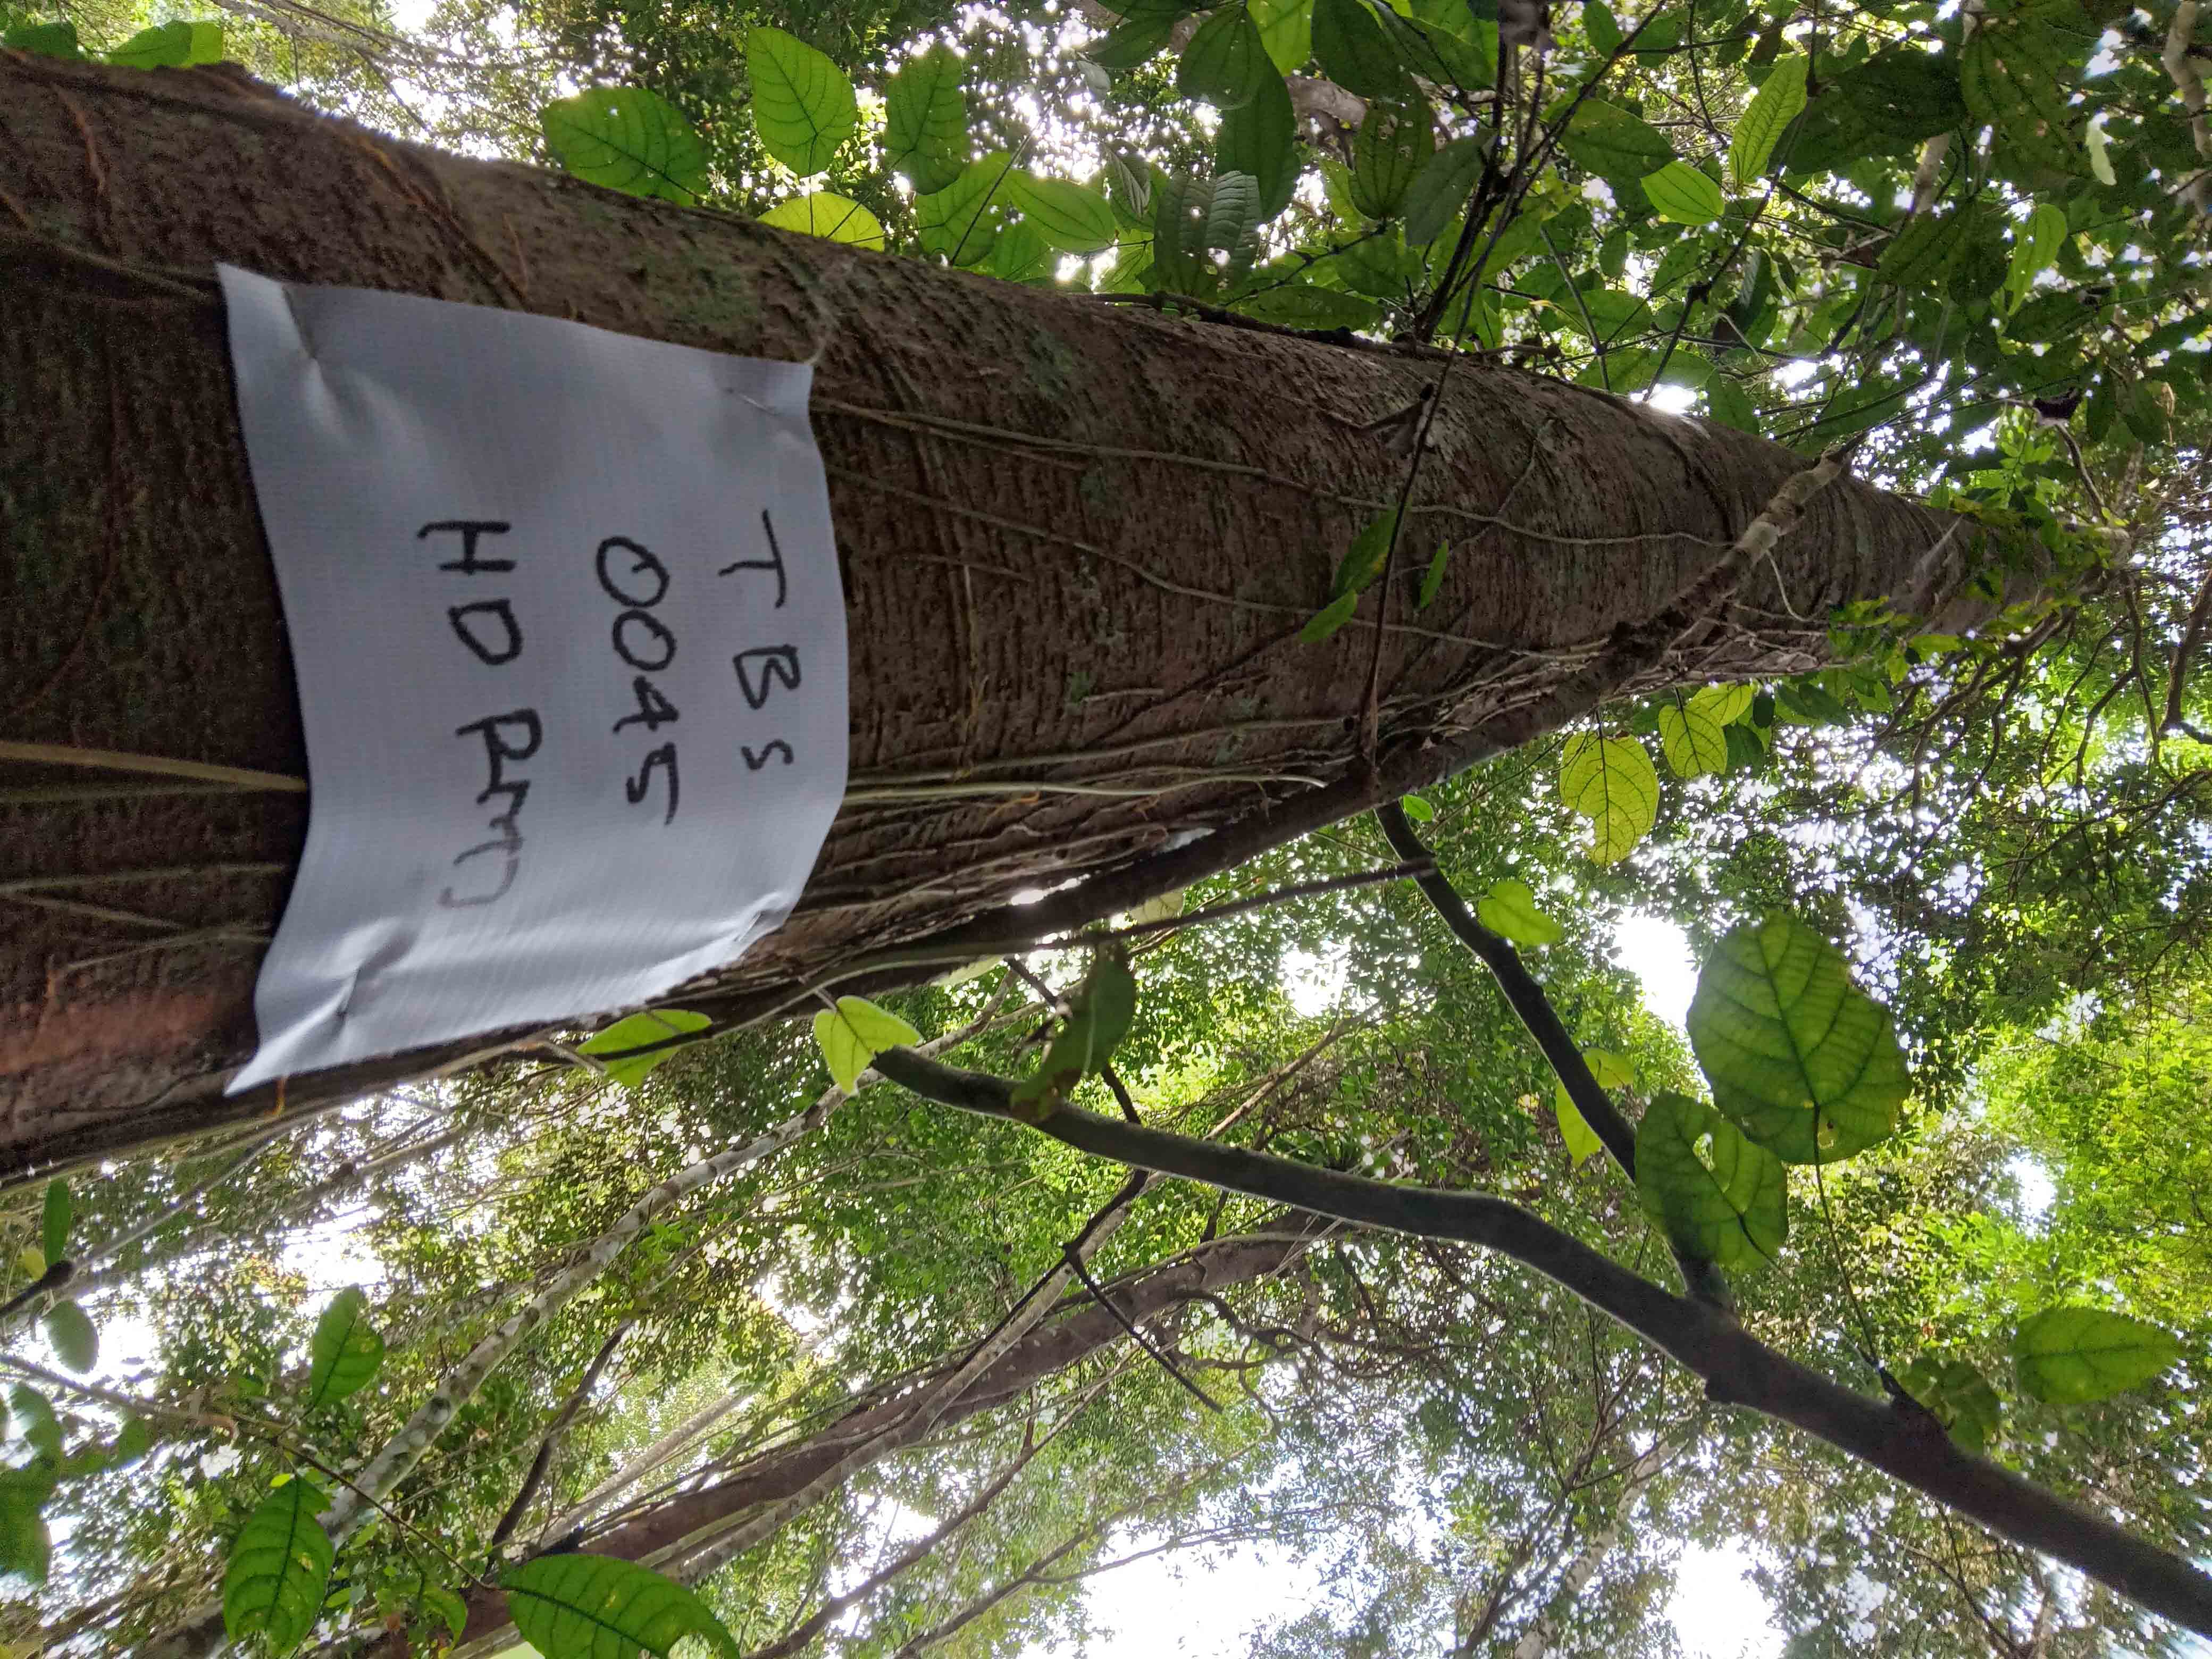 TBS
0045
HD RMD